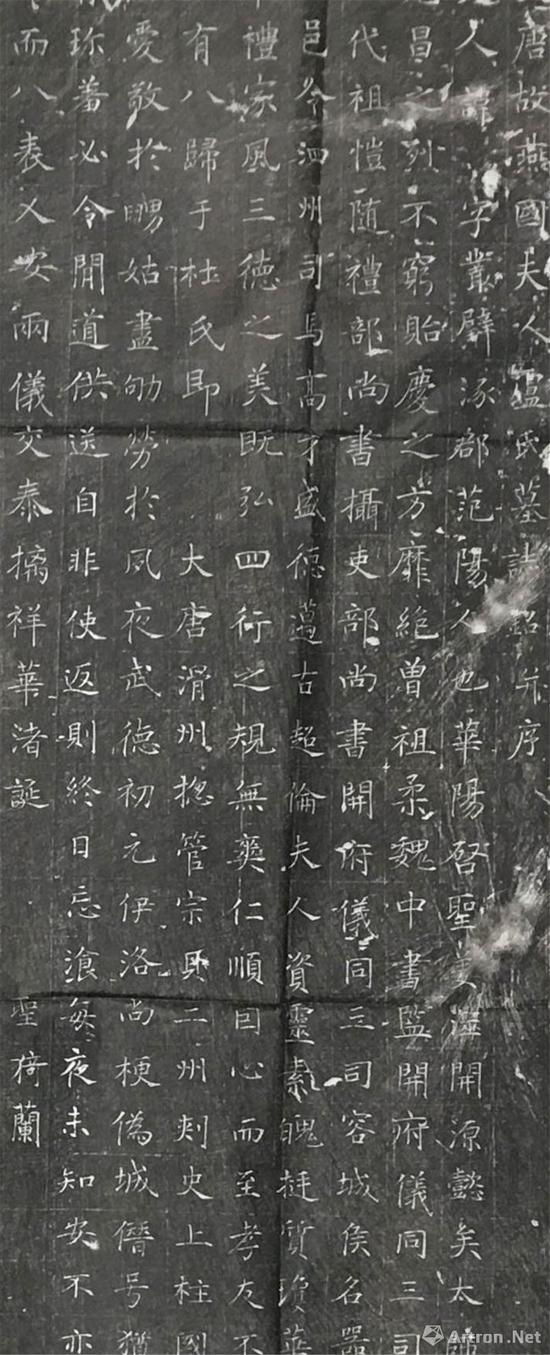 唐故燕國夫人盧氏墓誌銘并序
人諱字叢璧涿郡范陽人也華陽啓聖姜水開源懿矣太師
昌之列不窮貽慶之方靡絶曾祖柔魏中書監開府儀同三司
代祖愷隨禮部尚書攝吏部尚書開府儀同三司容城侯名器
邑令泗州司馬高才盛德邁古超倫夫人資靈素魄挺質瓊華
禮家風三德之美既弘四行之規無爽仁順因心而至孝友不
有八歸于杜氏即大唐滑州揔管宗具二州刾史上柱國
愛敬於舅姑盡劬勞於夙夜武德初元伊洛尚梗偽城僭号猶
珎羞必令閒道供送自非使返則終日忘飡每夜未知安不亦
而八表乂安兩儀交泰摛祥華渚誕聖猗蘭
Artron.Net